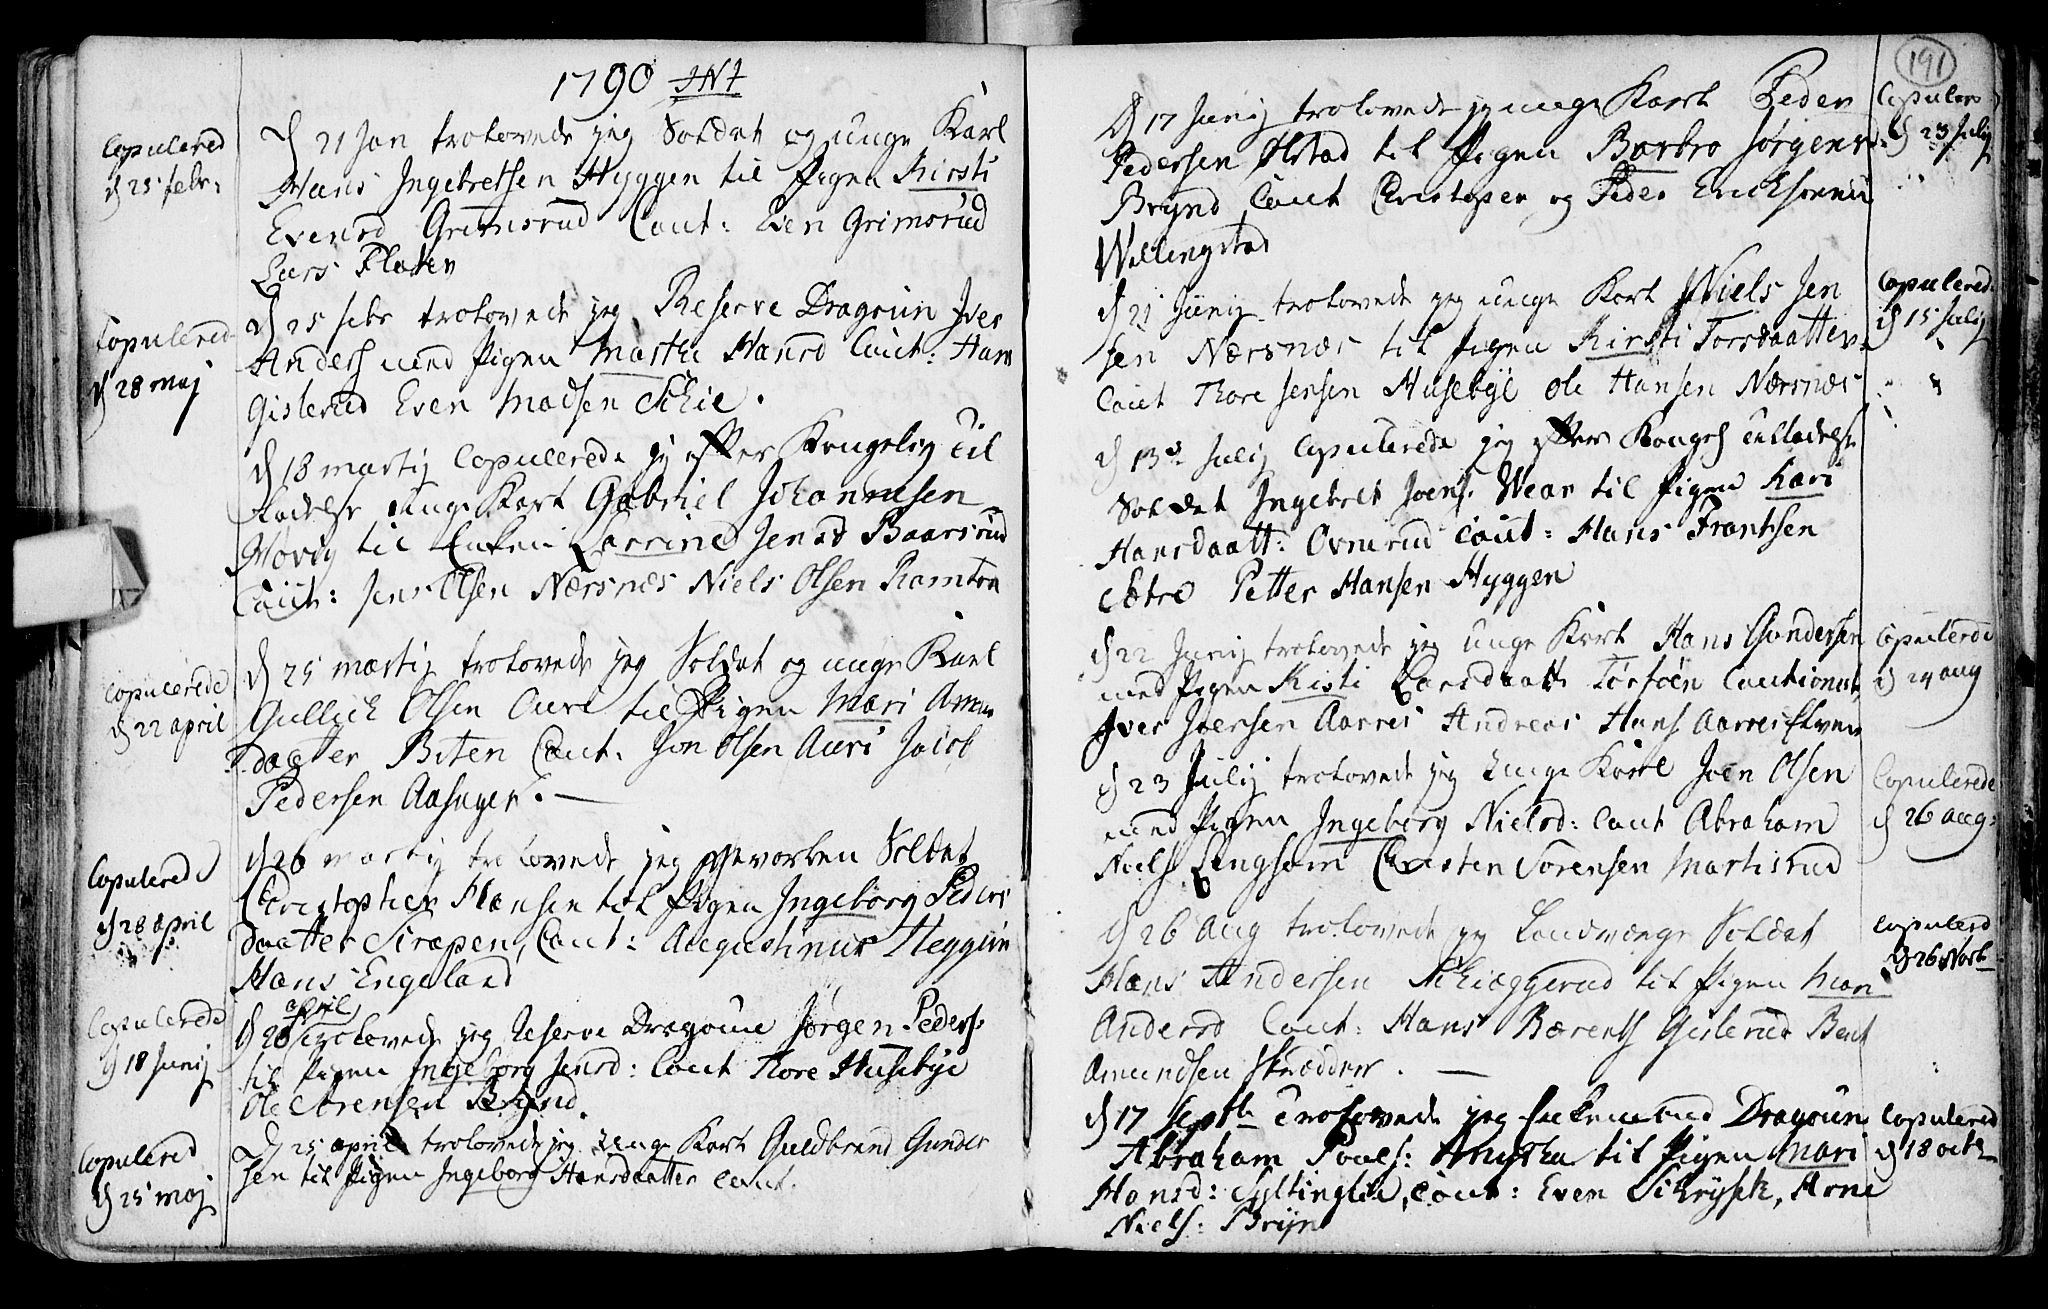 1790 INI
Copulered
d 25 febr:
d 21 Jan trolovede jeg Soldat og unge Karl
Hans Ingebretsen Hyggen til Pigen Kirsti
Evensd Grimsrud Caut: Even Grimsrud
Lars Floten
Copulered
d 28 maj
d 25 febr trolovede jeg Reserve Dragoun Iver
Anders med Pigen Martha Hansd Caut: Hans
Gislerud Even Madsen Schie.
d 18 martij Copulerede jg efter Kongelig til
ladelse unge Karl Gabriel Johannesen
Movig til Enken Karrine Jensd Baarsrud
Caut: Jens Olsen Nærsnæs Niels Olsen Ramton
Copulerede
d 22 april
d 25 martij trolovede jeg Soldat og unge Karl
Gullich Olsen Aure til Pigen Mari Amun
daatter Biten Caut: Jon Olsen Auri Jacob
Pedersen Aasager.
Copulered
d 28 april
d 26 martij trolovede jeg gevorben Soldat
Christopher Hansen til Pigen Ingeborg Peders
daatter Siræpen, Caut: Augustinus Heggum
Hans Engeland
Copulerede
d 18 Junij
d 28 april trolovede jeg Reserve Dragoun Jørgen Peders:
til Pigen Ingeborg Jensd: Caut Thore Husebye
Ole Arensen Brynd.
Copulered
d 25 maj
D 25 april trolovede jeg unge Karl Guldbrand Gunder
sen til Pigen Ingeborg Hansdaatter Caut.
191
Copulered
d 23 Julij
D 17 Junij trolovede jg unge Karl Peder
Pedersen Ølstad til Pigen Barbro Jørgensd:
Brynd, Caut Christopher og Peder Ericksønner
Wallingstad
Copulered
d 15 Julij
d 21 Junij trolovede jeg unge Karl Niels Jen
sen Nærsnæs til Pigen Kirsti Torsdaatter
Caut Thore Jensen Husebye Ole Hansen Nærsnæs
d 13de Julij Copulerede jeg efter Kongel tilladelse
Soldat Ingebret Joens. Wear til Pigen Kari
Hansdaatt: Ovnerud Caut: Hans Frantsen
Sætre Petter Hansen Hyggen
Copulerede
d 24 aug
d 22 Junij trolovede jeg unge Karl Hans Gundersen
med Pigen Kisti Larsdaatt Torføen Cautionist
Iver Iversen Aarres Andreas Hans Aarres
Copulerede
d 26 aug:
d 23 Julij trolovede jeg unge Karl Joen Olsen
med Pigen Ingeborg Nielsd: Caut Abraham
Niels Langsom Christen Sørensen Martisrud
Copulered
d 26 Novb
d 26 Aug trolovede jeg Landværge Soldat
Hans Andersen Schiæggerud til Pigen Mari
Andersd Caut: Hans Bærents Gislerud Bent
Amundsen Skrædder.
Copulered
d 18 octb
d 17 Septb trolovede jeg Enkemand Dragoun
Abraham Pouels: til Pigen Mari
Hansd: Syltinglie, Caut: Even Schrysek, Arne
Niels: Bryn